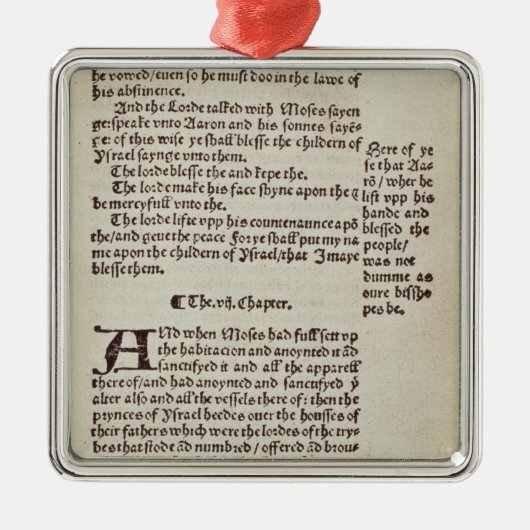 he vowed/even so he must doo in the lawe of
his abstinence.
And the Lorde talked with Moses sayen
ge: speake vnto Aaron and his sonnes sayē-
ge: of this wise ye shall blesse the childern of
Ysrael saynge vnto them.
The lorde blesse the and kepe the.
The lorde make his face shyne apon the &
be mercyfull vnto the.
The lorde lifte vpp his countenaunce apō
the/and geue the peace For ye shall put my na
me apon the childern of Ysrael/that I maye
blesse them.
Here of ye
se that Aa-
rō/ wher he
lift vpp his
hande and
blessed the
people/
was not
dumme as
oure bissho
pes be.
¶ The .vij. Chapter.
ANd when Moses had full sett vp
the habitacion and anoynted it ād
sanctifyed it and all the apparell
there of/and had anoynted and sanctifyed ẏ
alter also and all the vessels there of: then the
prynces of Ysrael heedes ouer the housses of
their fathers which were the lordes of the try-
bes that stode ād numbred/offered ād brou-